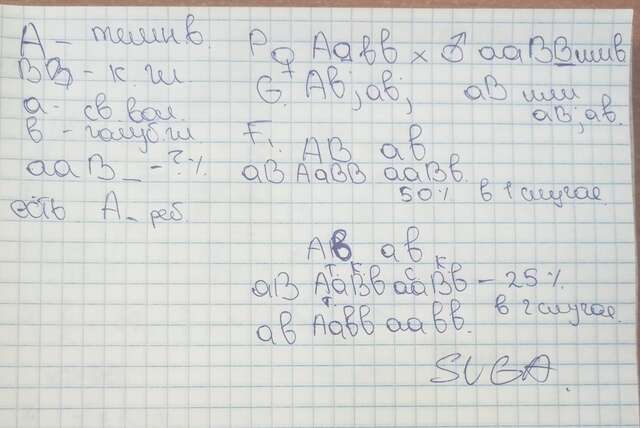 А - темн в.
ВВ - к. гл.
а - св. вол.
в - голуб. гл.
ааВ_ - ? %
есть А_ реб.
P ♀ Аавв × ♂ ааВВ или в
G. Ав; ав; аВ или
аВ; ав.
F₁ АВ ав
аВ АаВВ ааВв
50% в 1 случае
Ав ав
т. к. с к
аВ АаВв ааВв - 25%
т. в 2 случае.
ав Аавв аавв.
SUGA.